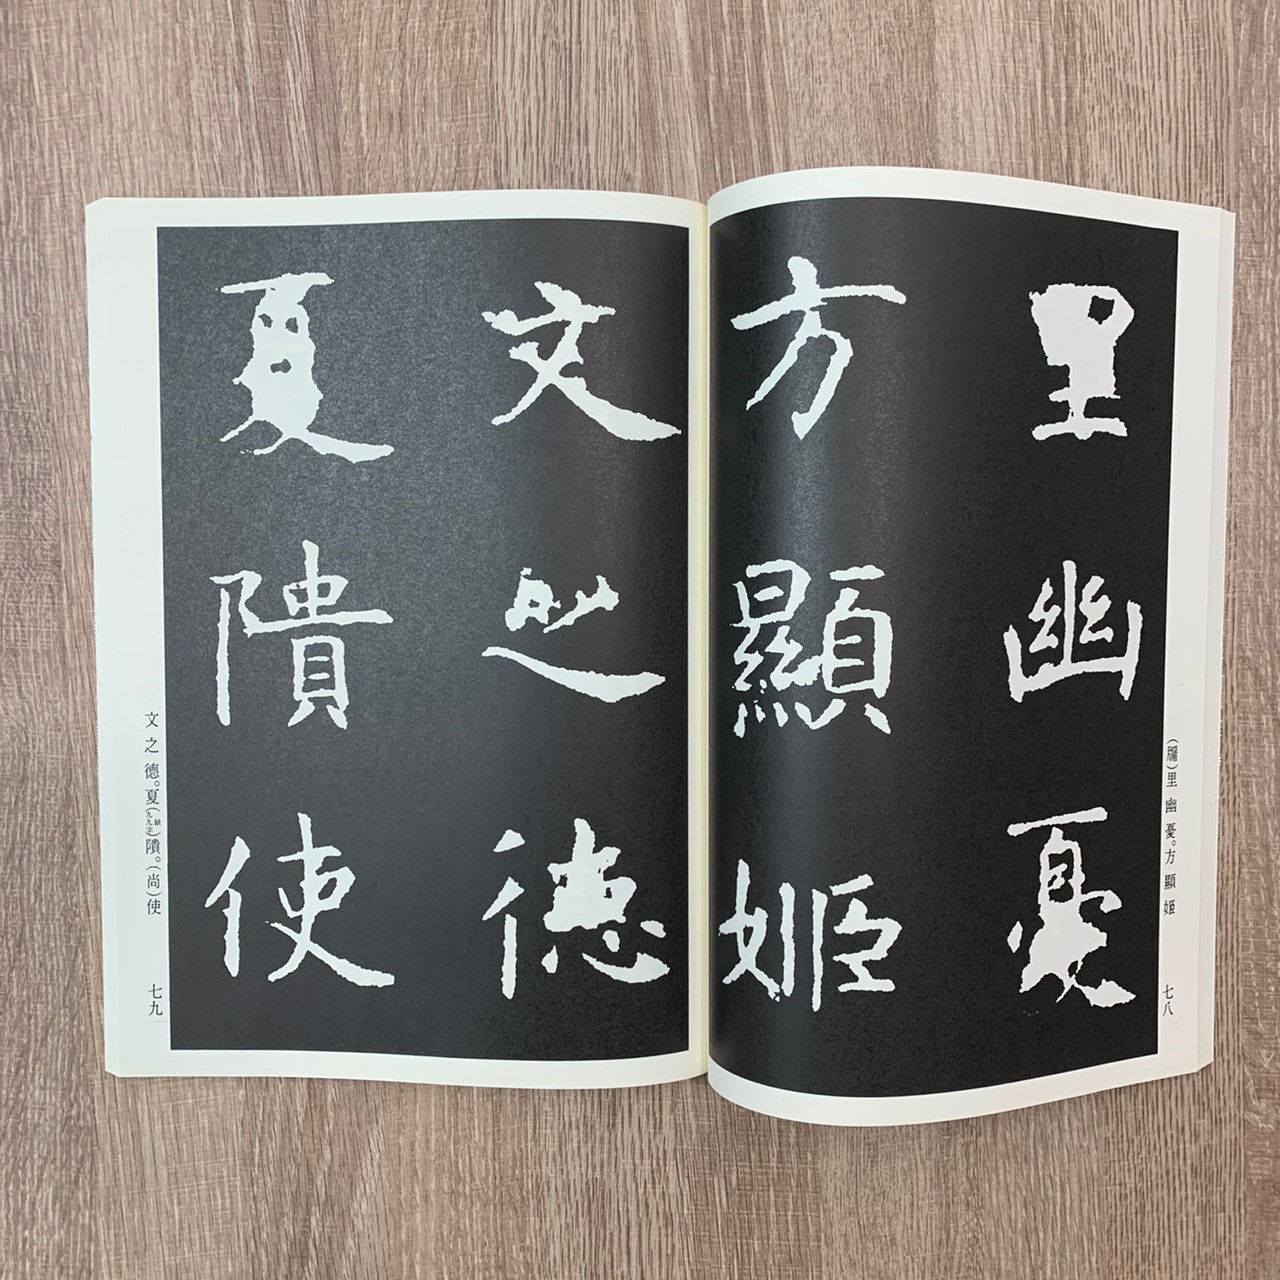 里幽憂
方顯姬
(牖)里幽憂。方顯姬
七八
文之德
夏隤使
文之德。夏(缺九九字)隤。(尚)使
七九